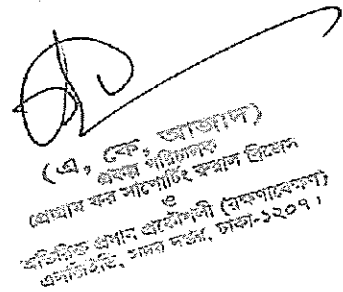 (এ, কে, আজাদ)
প্রকল্প পরিচালক
প্রোগ্রাম ফর সাপোর্টিং রুরাল ব্রিজেস
ও
অতিরিক্ত প্রধান প্রকৌশলী (রক্ষণাবেক্ষণ)
এলজিইডি, সদর দপ্তর, ঢাকা-১২০৭।